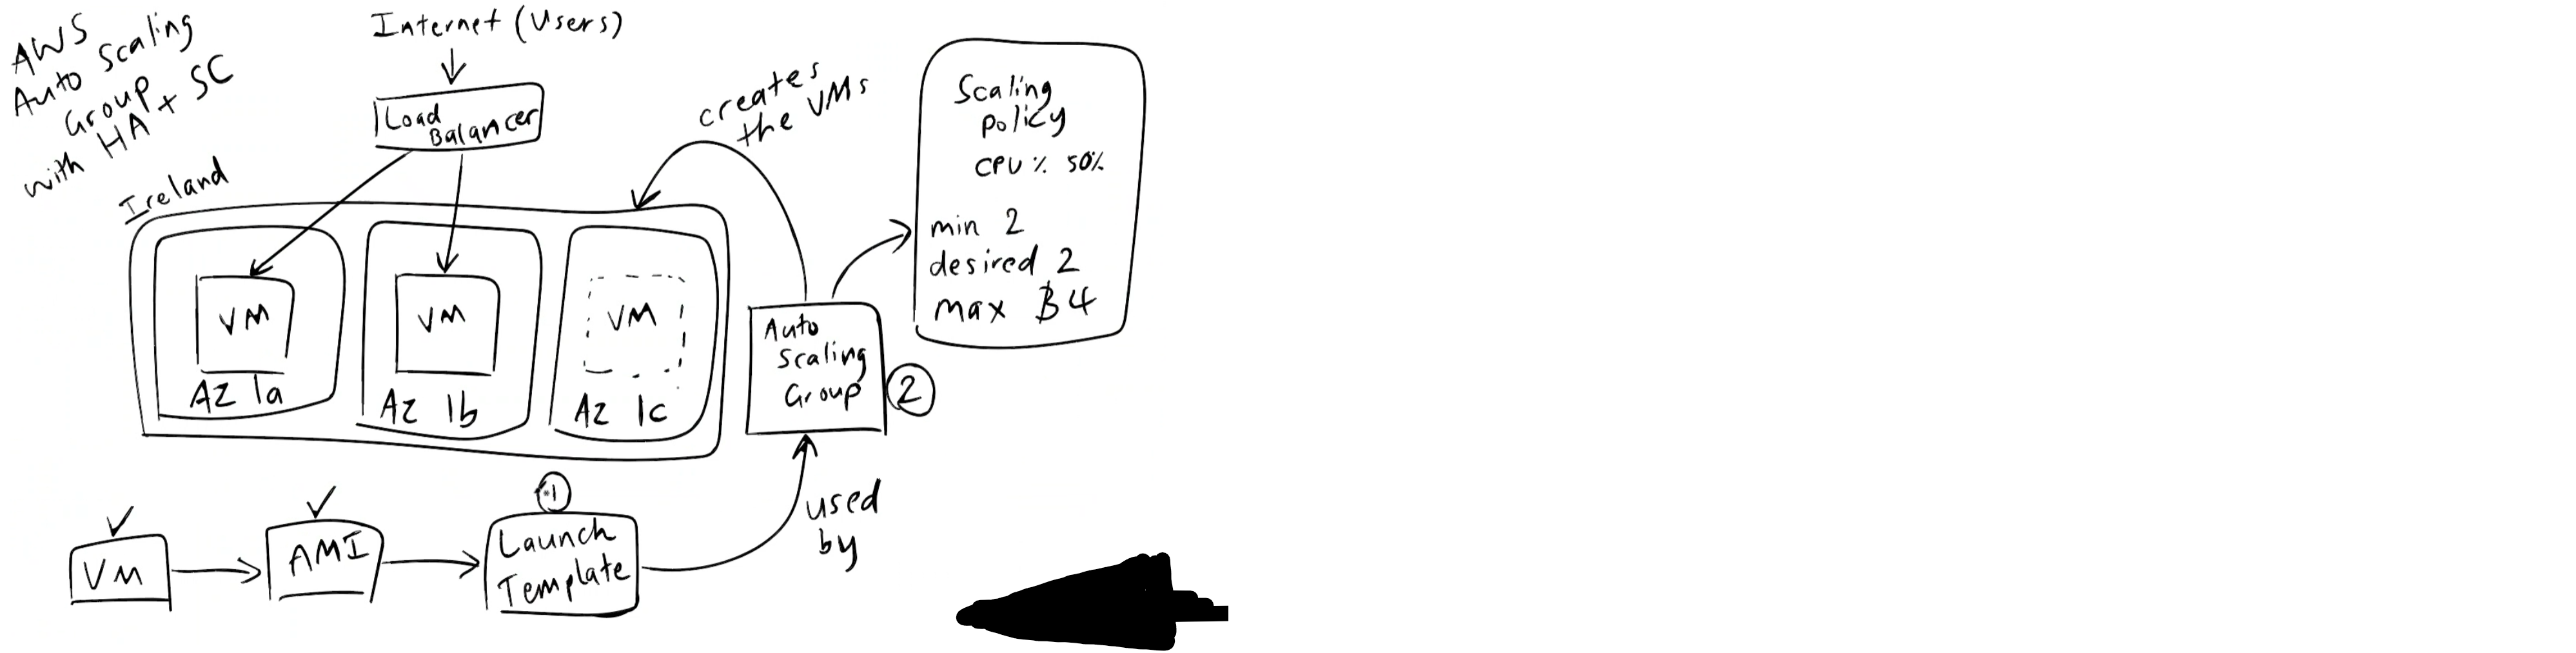 AWS
Auto Scaling
Group
with HA + SC
Internet (Users)
Load
Balancer
creates
the VMs
Scaling
Policy
CPU % 50%
min 2
desired 2
max 3 4
Ireland
VM
AZ 1a
VM
AZ 1b
VM
AZ 1c
Auto
Scaling
Group
2
1
VM
AMI
Launch
Template
used
by